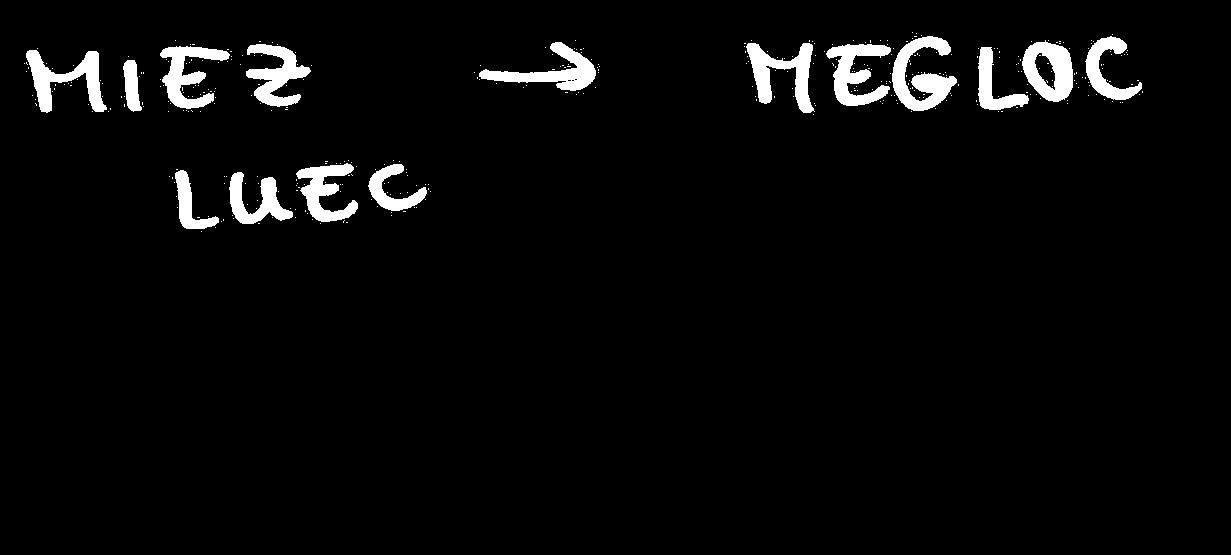 MIEZ → MEGLOC
LUEC